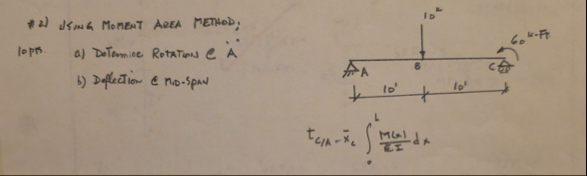 #2) USING MOMENT AREA METHOD;
10 pts. a) Determine ROTATION @ A
b) Deflection @ MID-SPAN
10ᵏ
60ᵏ⁻ᶠᵗ
A
B
C
10'
10'
t_{C/A} = x̄_c ∫₀ᴸ M(x)/EI dx